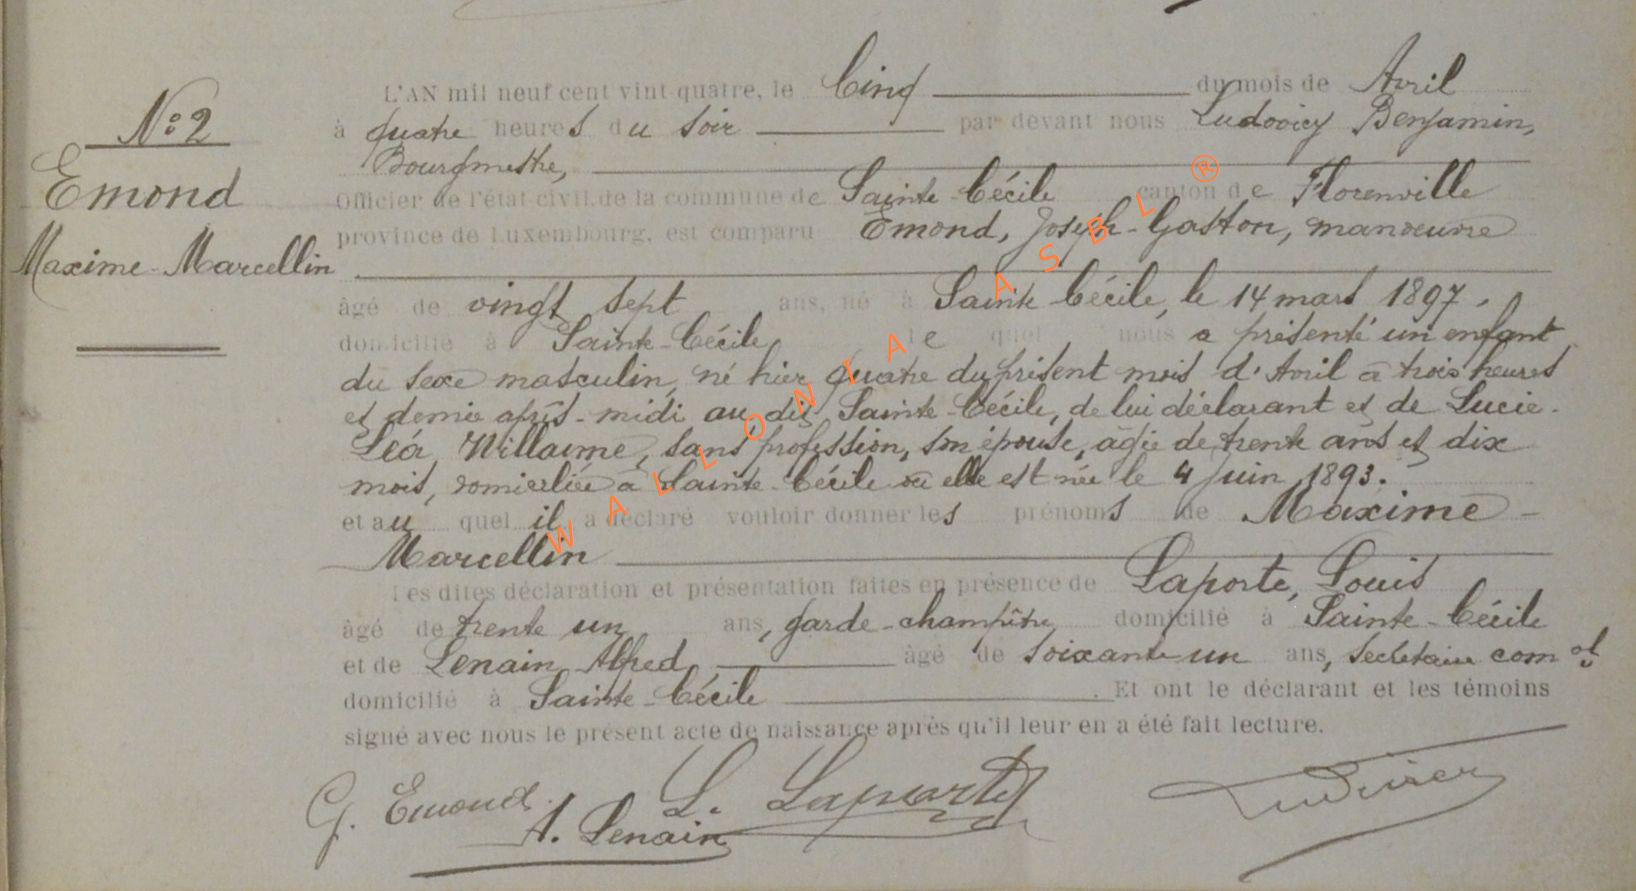 L'AN mil neuf cent vint quatre, le Cinq du mois de Avril
N° 2
à quatre heures du soir par devant nous Ludovicy Benjamin,
Bourgmestre,
Emond
Officier de l'état civil de la commune de Sainte-Cécile canton de Florenville
province de Luxembourg, est comparu Emond, Joseph-Gaston, manoeuvre
Maxime-Marcellin
âgé de vingt sept ans, né à Sainte Cécile, le 14 mars 1897,
domicilié à Sainte-Cécile le quel nous a présenté un enfant
du sexe masculin, né hier quatre du présent mois d'Avril à trois heures
et demie après-midi au dit Sainte-Cécile, de lui déclarant et de Lucie-
Léa Willaime, sans profession, son épouse, agée de trente ans et dix
mois, domiciliée à Sainte-Cécile où elle est née le 4 Juin 1893.
et au quel il a déclaré vouloir donner les prénoms de Maxime-
Marcellin
Les dites déclaration et présentation faites en présence de Laporte, Louis
âgé de trente un ans, garde-champêtre domicilié à Sainte-Cécile
et de Lenain Alfred, âgé de soixante un ans, secrétaire com al
domicilié à Sainte-Cécile. Et ont le déclarant et les témoins
signé avec nous le présent acte de naissance après qu'il leur en a été fait lecture.
G. Emond. L. Laporte
A. Lenain
WALLONIA ASBL ®